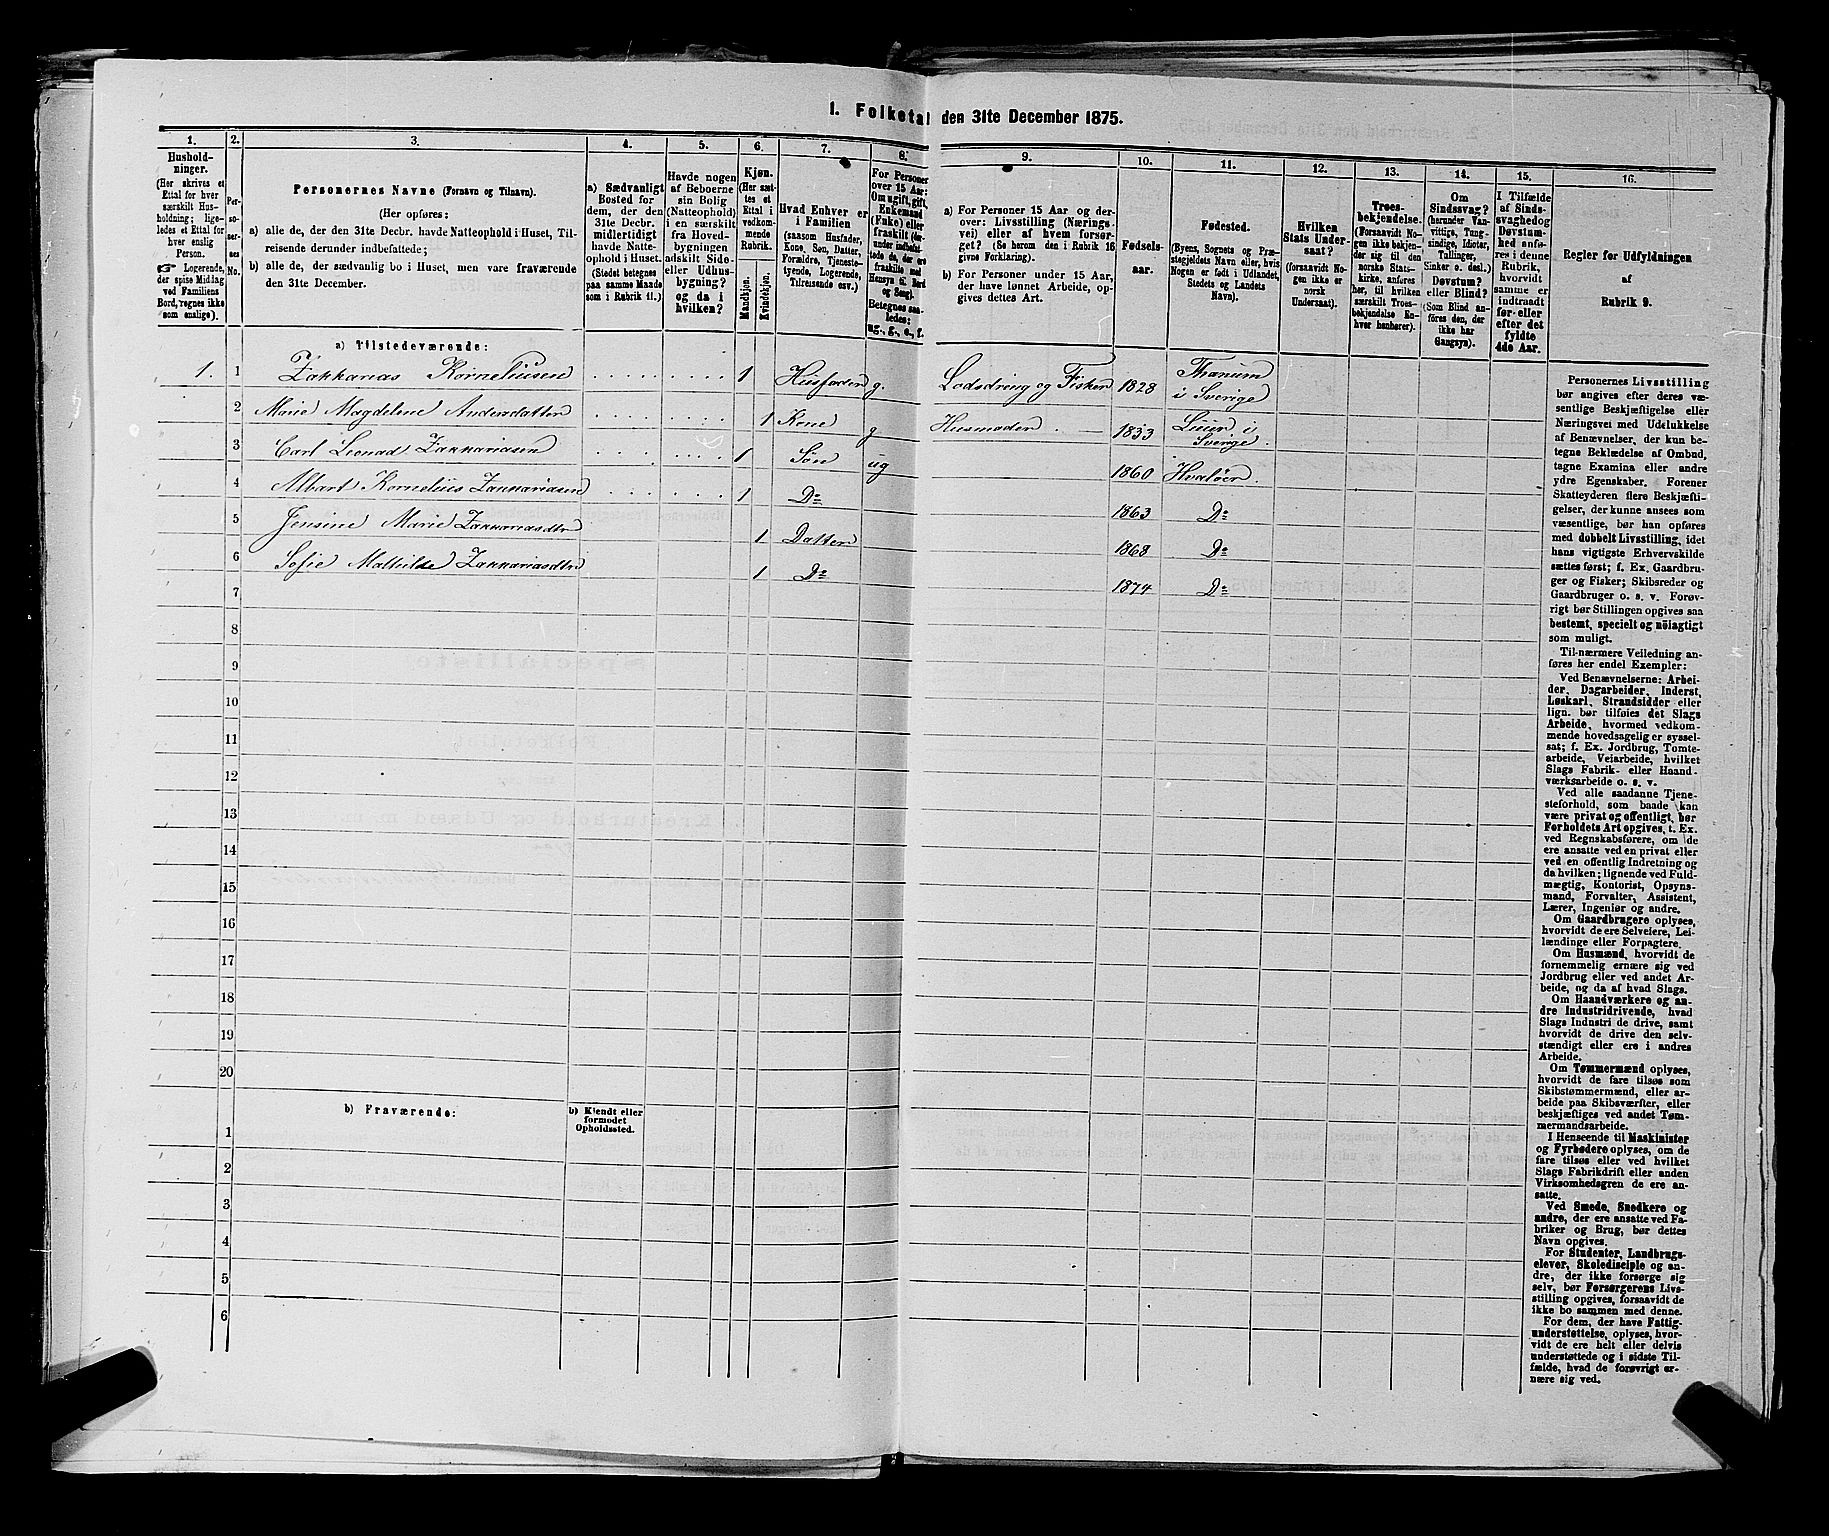 1. Folketal den 31te December 1875.
1.
Hushold-
ninger.
(Her skrives et
Ettal for hver
særskilt Hus-
holdning; lige-
ledes et Ettal for
hver enslig
Person.
☞ Logerende,
der spise Middag
ved Familiens
Bord, regnes ikke
som enslige).
2.
Per-
so-
ner-
nes
No.
3.
Personernes Navne (Fornavn og Tilnavn).
(Her opføres:
a) alle de, der den 31te Decbr. havde Natteophold i Huset, Til-
reisende derunder indbefattede;
b) alle de, der sædvanlig bo i Huset, men vare fraværende
den 31te December.
4.
a) Sædvanligt
Bosted for
dem, der den
31te Decbr.
midlertidigt
havde Natte-
ophold i Huset.
(Stedet betegnes
paa samme Maade
som i Rubrik 11.)
5.
Havde nogen
af Beboerne
sin Bolig
(Natteophold)
i en særskilt
fra Hoved-
bygningen
adskilt Side-
eller Udhus-
bygning?
og da i
hvilken?
6.
Kjøn.
(Her sæt-
tes et
Ettal i
vedkom-
mende
Rubrik.
Mandkjøn.
Kvindekjøn.
7.
Hvad Enhver er
i Familien
(saasom Husfader,
Kone, Søn, Datter,
Forældre, Tjeneste-
tyende, Logerende,
Tilreisende osv.)
8.
For Personer
over 15 Aar:
Om ugift, gift,
Enkemand
(Enke) eller
fraskilt (her-
under indbefat-
tede de, der ere
fraskilte med
Hensyn til Bord
og Seng).
Betegnes saa-
ledes:
ug., g., e., f.
9.
a) For Personer 15 Aar og der-
over: Livsstilling (Nærings-
vei) eller af hvem forsør-
get? (Se herom den i Rubrik 16
givne Forklaring).
b) For Personer under 15 Aar,
der have lønnet Arbeide, op-
gives dettes Art.
10.
Fødsels-
aar.
11.
Fødested.
(Byens, Sognets og Præ-
stegjeldets Navn eller, hvis
Nogen er født i Udlandet,
Stedets og Landets
Navn).
12.
Hvilken
Stats Under-
saat?
(forsaavidt No-
gen ikke er
norsk
Undersaat).
13.
Troes-
bekjendelse.
(Forsaavidt No-
gen ikke bekjen-
der sig til den
norske Stats-
kirke, anføres
her, til hvilken
særskilt Troes-
bekjendelse En-
hver henhører).
14.
Om
Sindssvag?
(herunder Van-
vittige, Tung-
sindige, Idioter,
Tullinger,
Sinker o. desl.)
Døvstum?
eller Blind?
(Som Blind an-
føres den, der
ikke har
Gangsyn).
15.
I Tilfælde
af Sinds-
svaghed og
Døvstum-
hed anfø-
res i denne
Rubrik,
hvorvidt
samme er
indtraadt
før- eller
efter det
fyldte
4de Aar.
16.
Regler for Udfyldningen
af
Rubrik 9.
a) Tilstedeværende:
1. 1 Zakkarias Korneliusen 1 Husfader g. Lodsdreng og Fisker 1828 Thanum i Sverige
2 Marie Magdelene Andersdatter 1 Kone g Husmoder 1833 Luur i Sverige.
3 Carl Leonad Zakkariasen 1 Søn ug 1860 Hvaløer.
4 Albart Kornelius Zakkariasen 1 Do 1863 Do
5 Jensine Marie Zakkariasdtr 1 Datter 1868 Do
6 Sofie Mathilde Zakkariasdtr 1 Do 1874 Do
7
8
9
10
11
12
13
14
15
16
17
18
19
20
b) Fraværende:
b) Kjendt eller
formodet
Opholdssted.
1
2
3
4
5
6
Personernes Livsstilling
bør angives efter deres væ-
sentlige Beskjæftigelse eller
Næringsvei med Udelukkelse
af Benævnelser, der kun be-
tegne Beklædelse af Ombud,
tagne Examina eller andre
ydre Egenskaber. Forener
Skatteyderen flere Beskjæfti-
gelser, der kunne ansees som
væsentlige, bør han opføres
med dobbelt Livsstilling, idet
hans vigtigste Erhvervskilde
sættes først; f. Ex. Gaardbru-
ger og Fisker; Skibsreder og
Gaardbruger o. s. v. Forøv-
rigt bør Stillingen opgives saa
bestemt, specielt og nøiagtigt
som muligt.
Til nærmere Veiledning an-
føres her endel Exempler:
Ved Benævnelserne: Arbei-
der, Dagarbeider, Inderst,
Løskarl, Strandsidder eller
lign. bør tilføies det Slags
Arbeide, hvormed vedkom-
mende hovedsagelig er syssel-
sat; f. Ex. Jordbrug, Tomte-
arbeide, Veiarbeide, hvilket
Slags Fabrik- eller Haand-
værksarbeide o. s. v.
Ved alle saadanne Tjene-
steforhold, som baade kan
være privat og offentligt, bør
Forholdets Art opgives, t. Ex.
ved Regnskabsførere, om de
ere ansatte ved en privat eller
ved en offentlig Indretning og
da hvilken; lignende ved Fuld-
mægtig, Kontorist, Opsyns-
mand, Forvalter, Assistent,
Lærer, Ingeniør og andre.
Om Gaardbrugere oplyses,
hvorvidt de ere Selveiere, Lei-
lændinge eller Forpagtere.
Om Husmænd, hvorvidt de
fornemmelig ernære sig ved
Jordbrug eller ved andet Ar-
beide, og da af hvad Slags.
Om Haandværkere og an-
dre Industridrivende, hvad
Slags Industri de drive, samt
hvorvidt de drive den selv-
stændigt eller ere i andres
Arbeide.
Om Tømmermænd oplyses,
hvorvidt de fare tilsøs som
Skibstømmermænd, eller ar-
beide paa Skibsværfter, eller
beskjæftiges ved andet Tøm-
mermandsarbeide.
I Henseende til Maskinister
og Fyrbødere oplyses, om de
fare tilsøs eller ved hvilket
Slags Fabrikdrift eller anden
Virksomhedsgren de ere an-
satte.
Ved Smede, Snedkere og
andre, der ere ansatte ved Fa-
briker og Brug, bør dettes
Navn opgives.
For Studenter, Landbrugs-
elever, Skoledisciple og an-
dre, der ikke forsørge sig
selv, bør Forsørgerens Livs-
stilling opgives, forsaavidt de
ikke bo sammen med denne.
For dem, der have Fattig-
understøttelse, oplyses, hvor-
vidt de ere helt eller delvis
understøttede og i sidste Til-
fælde, hvad de forøvrigt er-
nære sig ved.